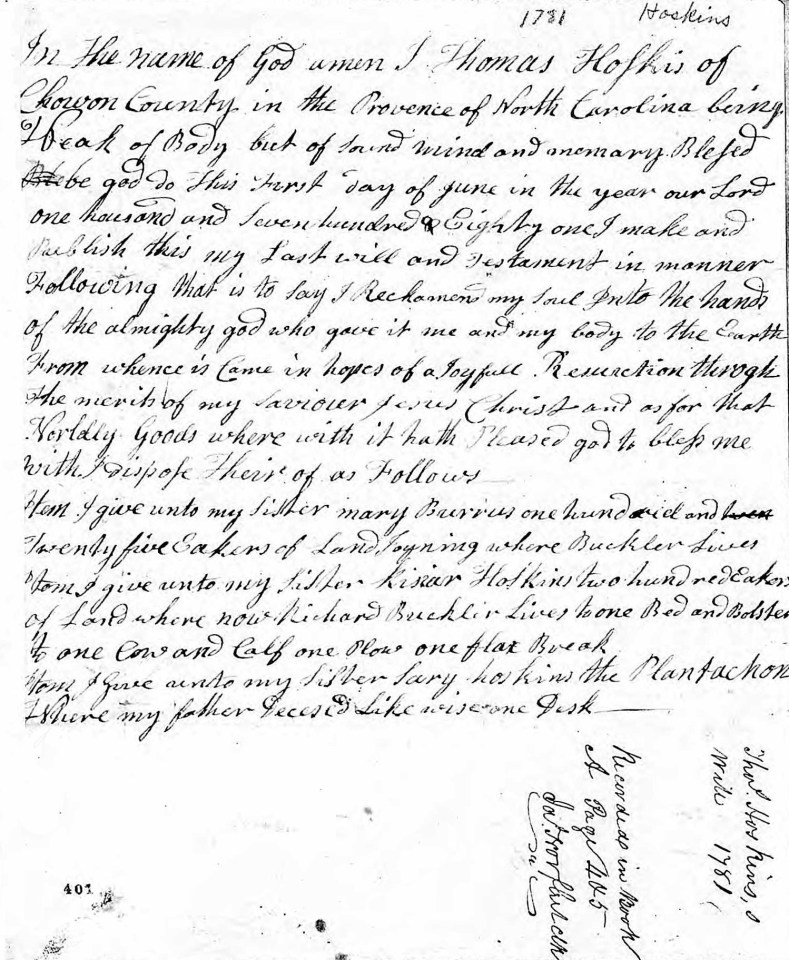 1781 Hoskins
In the name of God amen I Thomas Hoskis of
Chowon County in the Provence of North Carolina being
Weak of Body but of sound mind and memary Blesed
be god do This First day of June in the year our Lord
one thousand and seven hundred & Eighty one I make and
Publish this my Last will and Testament in manner
Following that is to say I Reckamend my soul Into the hands
of the almighty god who gave it me and my body to the Earth
From whence is Came in hopes of a Joyfull Resurection throgh
the merits of my saviour Jesus Christ and as for that
Worldly Goods where with it hath Pleased god to bless me
with I dispose Their of as Follows
Item I give unto my sister mary Burrius one hundried and twen
Twenty five Eakers of Land Joyning where Buckler Lives
Itom I give unto my sister Kisiar Hoskins two hundred Eakers
of Land where now Richard Buckler Lives to one Bed and Bolster
to one Cow and Calf one Plow one flax Break
Itom I Give unto my sister Sary hoskins the Plantachon
Where my father Decesed Like wise one Desk
Thos. Hoskins,s
Will 1781
Recorded in Book
A Page 485
407